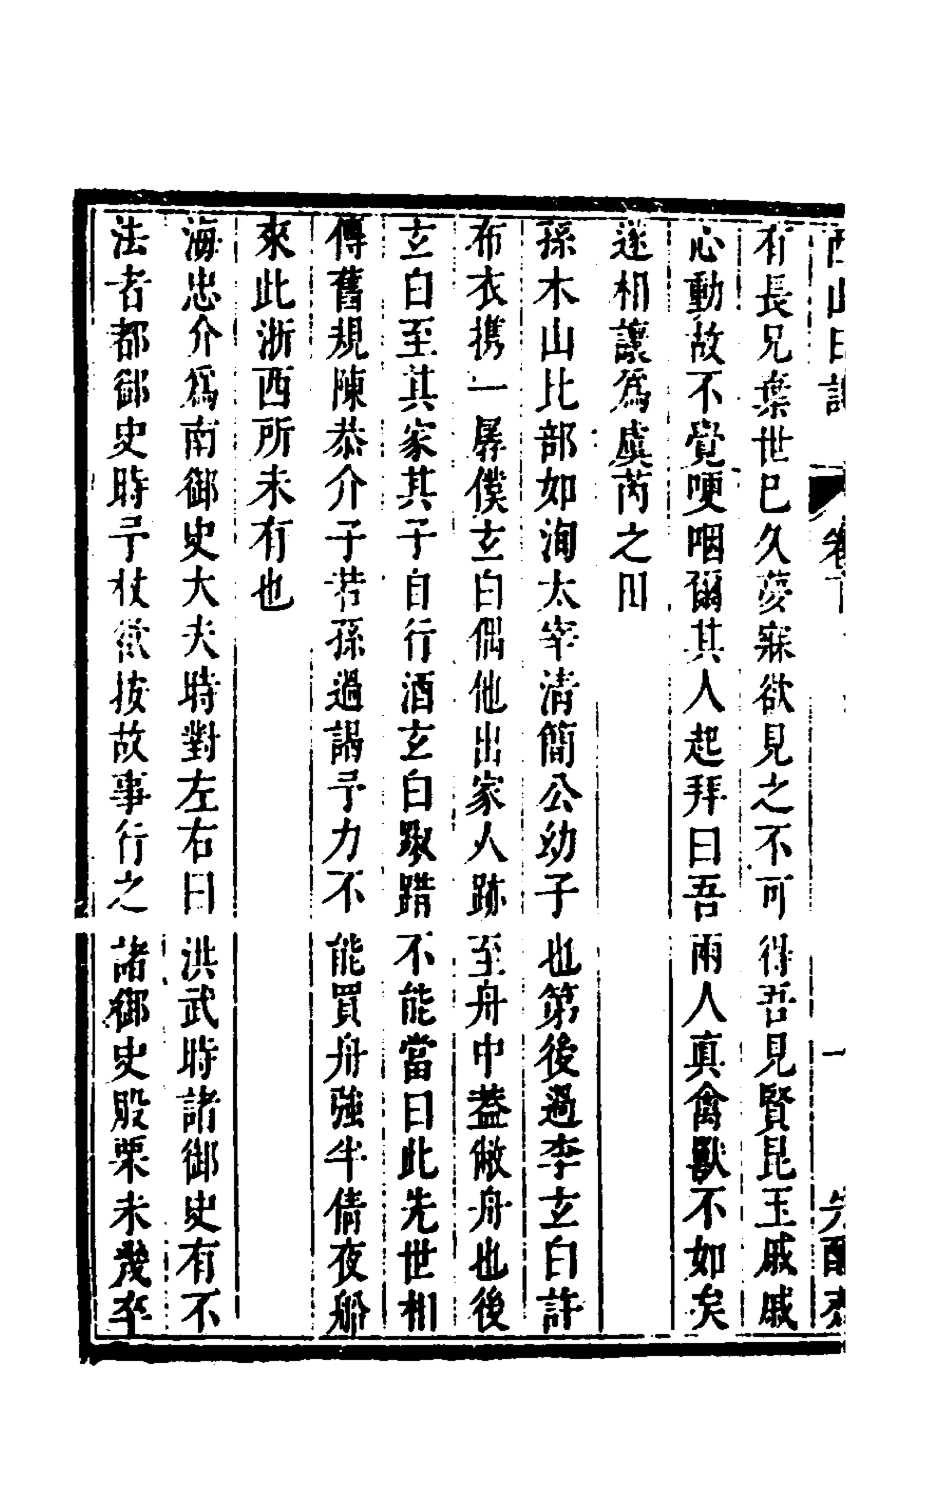 西山日記 卷下 一 先醒齋
有長兄棄世已久夢寐欲見之不可得吾見賢昆玉戚戚
心動故不覺哽咽爾其人起拜曰吾兩人真禽獸不如矣
遂相讓為虞芮之田
孫木山比部如洵太宰清簡公幼子也第後過李玄白許
布衣攜一孱僕玄白偶他出家人跡至舟中蓋敝舟也後
玄白至其家其子自行酒玄白踧踖不能當曰此先世相
傳舊規陳恭介子若孫過謁予力不能買舟強半倩夜船
來此浙西所未有也
海忠介爲南御史大夫時對左右曰洪武時諸御史有不
法者都御史時予杖欲按故事行之諸御史股栗未幾卒